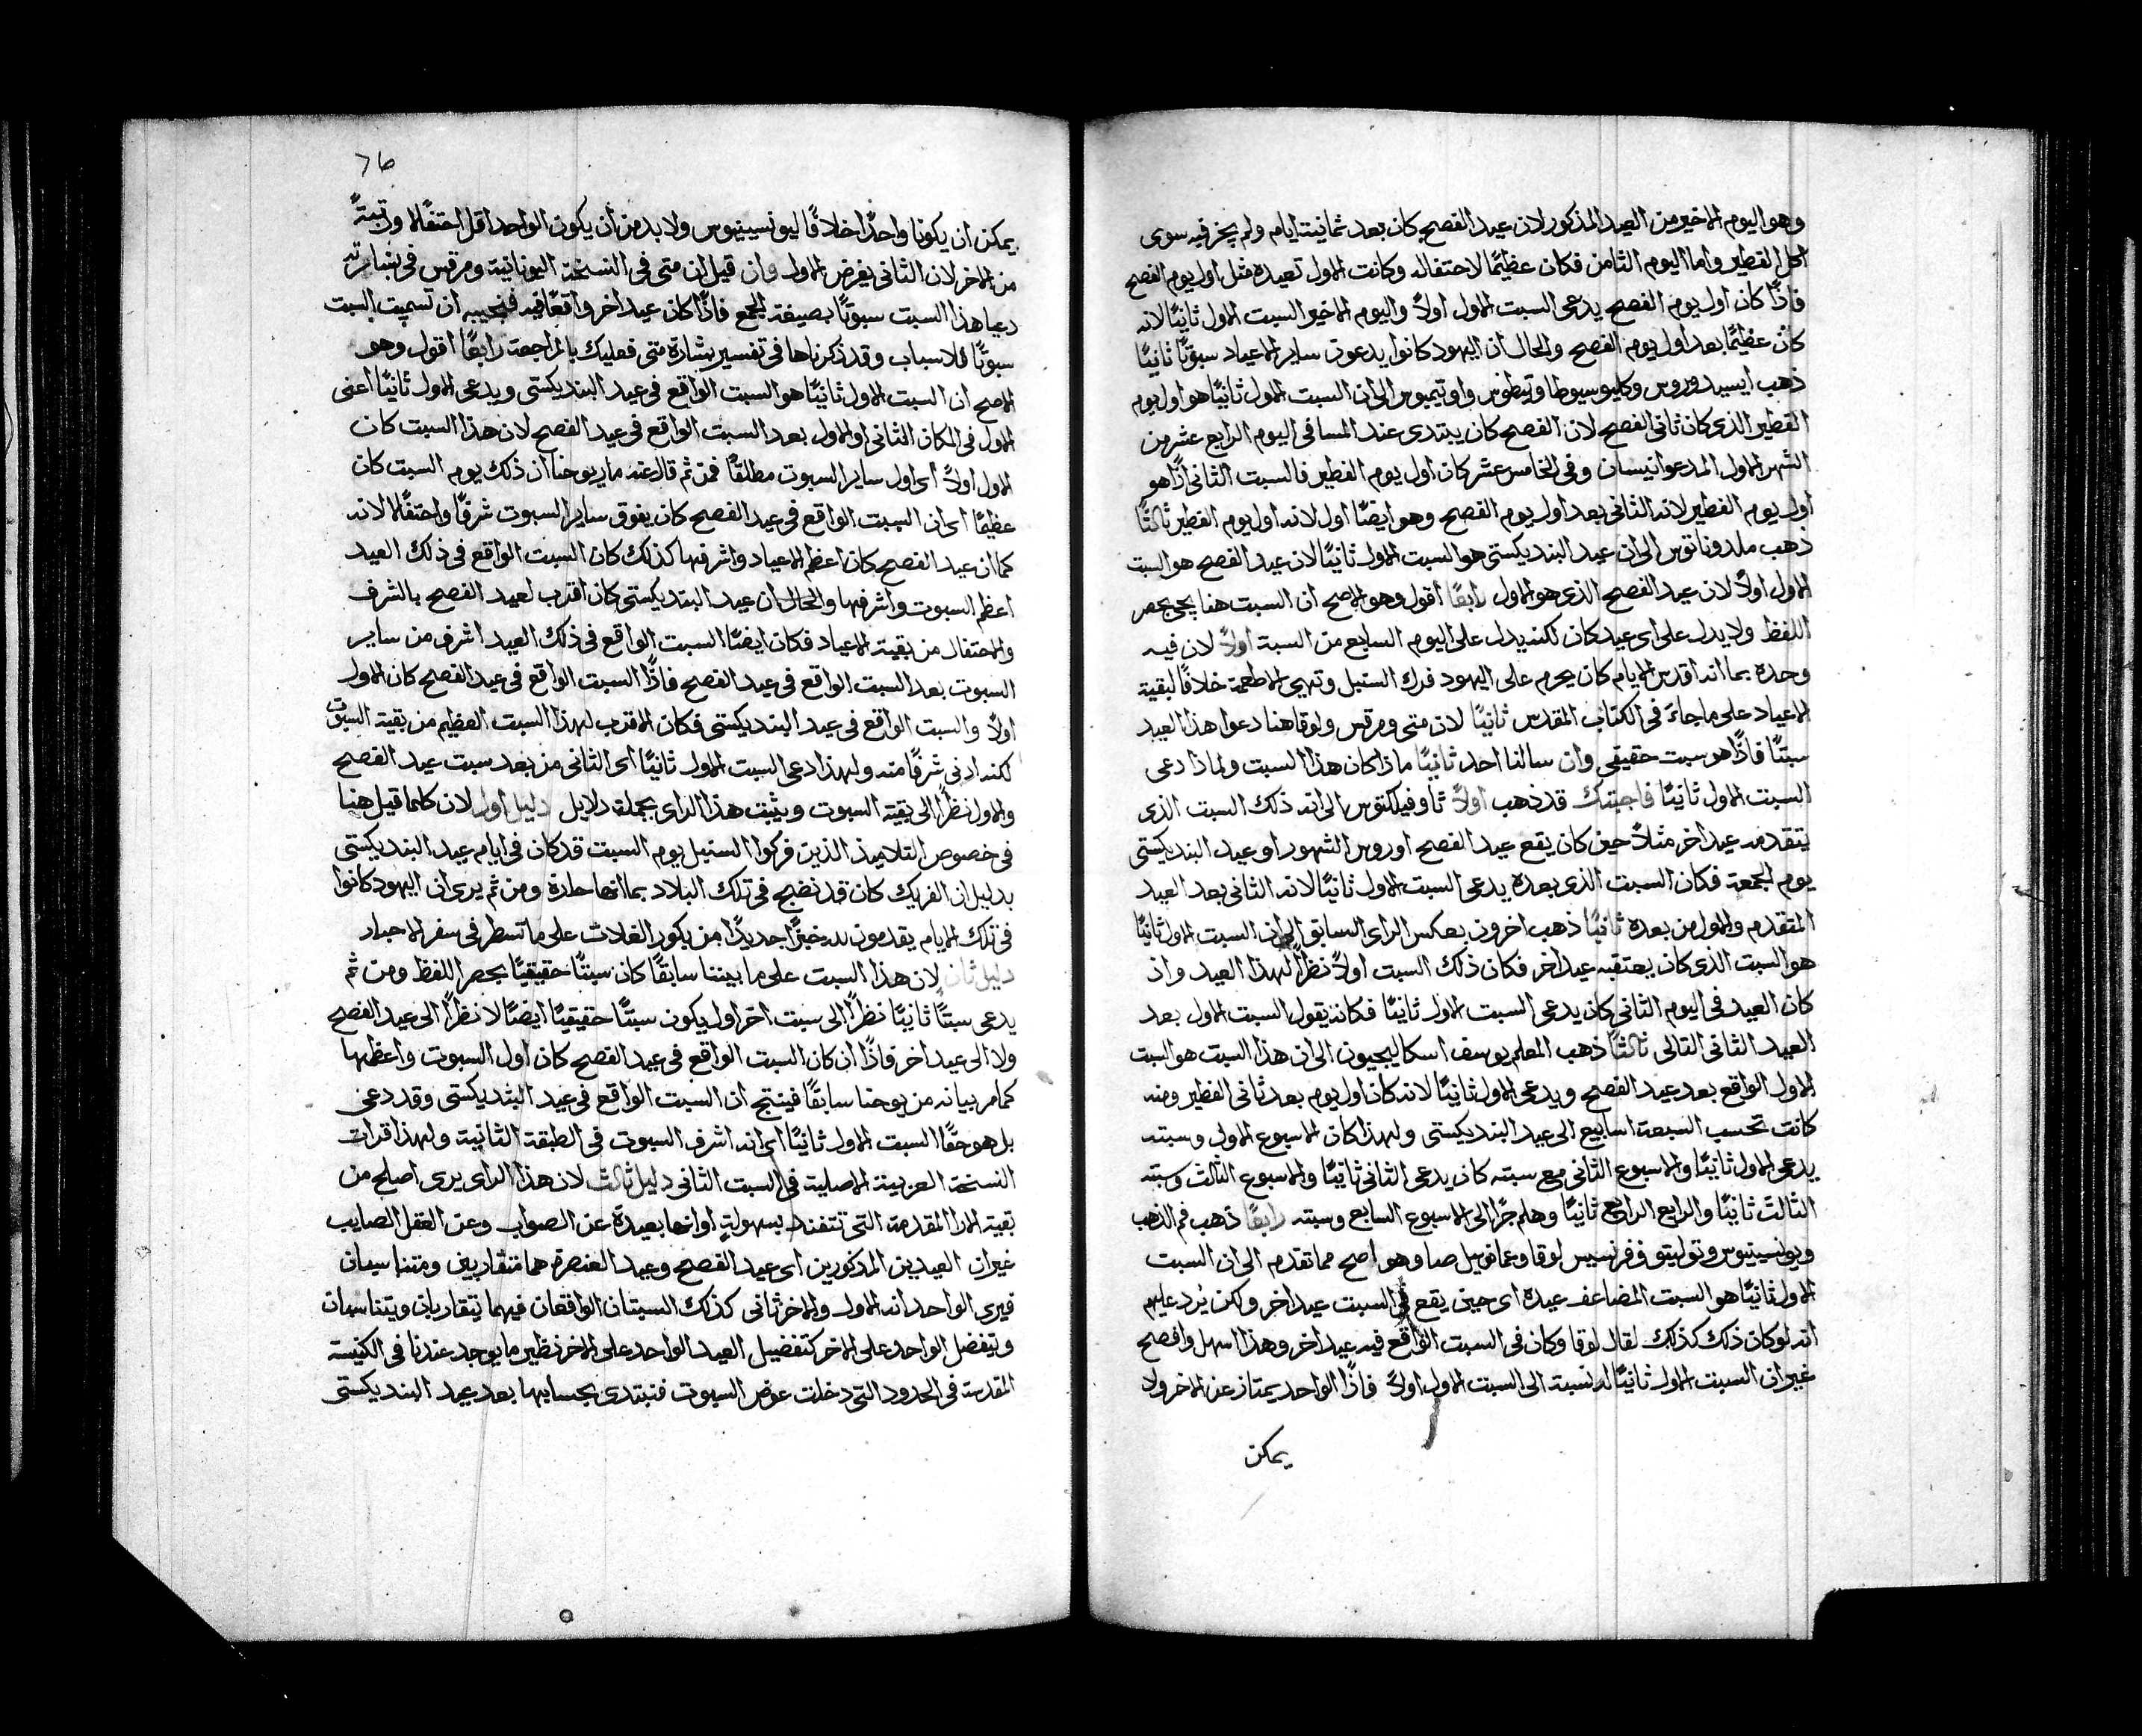 وهو اليوم الاخير من العيد المذكور لان عيد الفصح كان بعد ثمانية ايام ولم يخز فيه سوى
اكل الفطير واما اليوم الثامن فكان عظيمًا لاحتفاله وكانت الاول تعيده مثل اول يوم الفصح
فاذًا كان اول يوم الفصح يدعى السبت الاول اولاً واليوم الاخير السبت الاول ثانيًا لانه
كان عظيمًا بعد اول يوم الفصح والحال ان اليهود كانوا يدعون ساير الاعياد سبوتًا ثانيًا
ذهب ايسيدوروس وكليوسيوطا وتيطوس واوتيميوس الى ان السبت الاول ثانيًا هو اول يوم
الفطير الذي كان ثاني الفصح لان الفصح كان يبتدى عند المسا في اليوم الرابع عشر من
الشهر الاول المدعو انيسان وفي الخامس عشر كان اول يوم الفطير فالسبت الثاني اذًا هو
اول يوم الفطير لانه الثاني بعد اول يوم الفصح وهو ايضًا اول لانه اول يوم الفطير ثالثًا
ذهب ملدوناتوس الى ان عيد البنديكستى هو السبت الاول ثانيًا لان عيد الفصح هو السبت
الاول اولاً لان عيد الفصح الذي هو الاول رابعًا اقول وهو الاصح ان السبت هنا يجي بحصر
اللفظ ولا يدل على اي عيد كان لكنه يدل على اليوم السابع من السبة اولاً لان فيه
وحده بما انه اقدس الايام كان يحرم على اليهود فرك السنبل وتهيي الاطعمة خلافًا لبقية
الاعياد على ما جاء في الكتاب المقدس ثانيًا لان متى ومرقس ولوقا هنا دعوا هذا العيد
سبتًا فاذًا هو سبت حقيقي وان سالنا احد ثانيًا ماذا كان هذا السبت ولماذا دعى
السبت الاول ثانيًا فاجبتك قد ذهب اولاً ثاوفيلكتوس الى انه ذلك السبت الذي
يتقدمه عيد اخر مثلاً حين كان يقع عيد الفصح او روس الشهور او عيد البنديكستى
يوم الجمعة فكان السبت الذي بعده يدعى السبت الاول ثانيًا لانه الثاني بعد العيد
المتقدم والاول من بعده ثانيًا ذهب اخرون بعكس الراى السابق الى ان السبت الاول ثانيًا
هو السبت الذي كان يعتقبه عيد اخر فكان ذلك السبت اولاً نظرًا لهذا العيد واذ
كان العيد في اليوم الثاني كان يدعى السبت الاول ثانيًا فكانه يقول السبت الاول بعد
العيد الثاني التالى ثالثًا ذهب المعلم يوسف اسكاليجيون الى ان هذا السبت هو السبت
الاول الواقع بعد عيد الفصح ويدعى الاول ثانيًا لانه كان اول يوم بعد ثاني الفطير ومنه
كانت تحسب السبعة اسابيع الى عيد البنديكستى ولهذا كان الاسبوع الاول وسبته
يدعى الاول ثانيًا والاسبوع الثاني مع سبته كان يدعى الثاني ثانيًا والاسبوع الثالث وسبته
الثالث ثانيًا والرابع الرابع ثانيًا وهلم جرًا الى الاسبوع السابع وسبته رابعًا ذهب فم الذهب
ويونسينيوس وتوليتو وفرنسيس لوقا وعمانويل صا وهو اصح مما تقدم الى ان السبت
الاول ثانيًا هو السبت المضاعف عيده اى حين يقع في السبت عيد اخر ولكن يُرد عليهم
انه لو كان ذلك كذلك لقال لوقا وكان في السبت الواقع فيه عيد اخر وهذا اسهل وافصح
غير ان السبت الاول ثانيًا له نسبة الى السبت الاول اولاً فاذًا الواحد يمتاز عن الاخر ولا
يمكن
76
يمكن ان يكونا واحدًا خلافًا ليونسينيوس ولا بد من ان يكون الواحد اقل احتفًالا ورتبةً
من الاخر لان الثاني يفرض الاول وان قيل ان متى في النسخة اليونانية ومرقس في بشارته
دعيا هذا السبت سبوتًا بصيغة الجمع فاذًا كان عيد اخر واقعًا فيه فنجيبه ان تسميت السبت
سبوتًا لاسباب وقد ذكرناها في تفسير بشارة متى فعليك بالمراجعة رابعًا اقول وهو
الاصح ان السبت الاول ثانيًا هو السبت الواقع في عيد البنديكستى ويدعى الاول ثانيًا اعني
الاول في المكان الثاني او الاول بعد السبت الواقع في عيد الفصح لان هذا السبت كان
الاول اولاً اى اول ساير السبوت مطلقًا فمن ثم قال عنه ماريوحنا ان ذلك يوم السبت كان
عظيمًا اى ان السبت الواقع في عيد الفصح كان يفوق ساير السبوت شرفًا واحتفًالا لانه
كما ان عيد الفصح كان اعظم الاعياد واشرفها كذلك كان السبت الواقع في ذلك العيد
اعظم السبوت واشرفها والحال ان عيد البنديكستى كان اقرب لعيد الفصح بالشرف
والاحتفال من بقية الاعياد فكان ايضًا السبت الواقع في ذلك العيد اشرف من ساير
السبوت بعد السبت الواقع في عيد الفصح فاذًا السبت الواقع في عيد الفصح كان الاول
اولاً والسبت الواقع في عيد البنديكستى فكان الاقرب لهذا السبت العظيم من بقية السبوت
لكنه ادنى شرفًا منه ولهذا دعى السبت الاول ثانيًا اى الثاني من بعد سبت عيد الفصح
والاول نظرًا الى بقية السبوت ويثبت هذا الراى بجملة دلايل دليل اول لان كلما قيل هنا
في خصوص التلاميذ الذين فركوا السنبل يوم السبت قد كان في ايام عيد البنديكستى
بدليل ان الفريك كان قد نضج في تلك البلاد بما انها حارة ومن ثم يرى ان اليهود كانوا
في تلك الايام يقدمون لله خبزًا جديدًا من بكور الغلات على ما تسطر في سفر الاحبار
دليل ثان لان هذا السبت على ما بيننا سابقًا كان سبتًا حقيقيًا بحصر اللفظ ومن ثم
يدعى سبتًا ثانيًا نظرًا الى سبت اخر اول يكون سبتًا حقيقيًا ايضًا لا نظرًا الى عيد الفصح
ولا الى عيد اخر فاذًا ان كان السبت الواقع في عيد الفصح كان اول السبوت واعظمها
كما مر بيانه من يوحنا سابقًا فينتج ان السبت الواقع في عيد البنديكستى وقد دعى
بل هو حقًا السبت الاول ثانيًا اى انه اشرف السبوت في الطبقة الثانية ولهذا قرات
النسخة العربية الاصلية في السبت الثاني دليل ثالث لان هذا الراى يرى اصلح من
بقية الارا المقدمة التي تتفند بسهولةٍ او انها بعيدة عن الصواب وعن العقل الصايب
غير ان العيدين المذكورين اى عيد الفصح وعيد العنصرة هما متقاربين ومتناسبان
فيرى الواحد انه الاول والاخر ثاني كذلك السبتان الواقعان فيهما يتقاربان ويتناسبان
ويتفضل الواحد على الاخر كتفضيل العيد الواحد على الاخر نظير ما يوجد عندنا في الكنيسة
المقدسة في الحدود التي دخلت عوض السبوت فنبتدى بحسابها بعد عيد البنديكستى